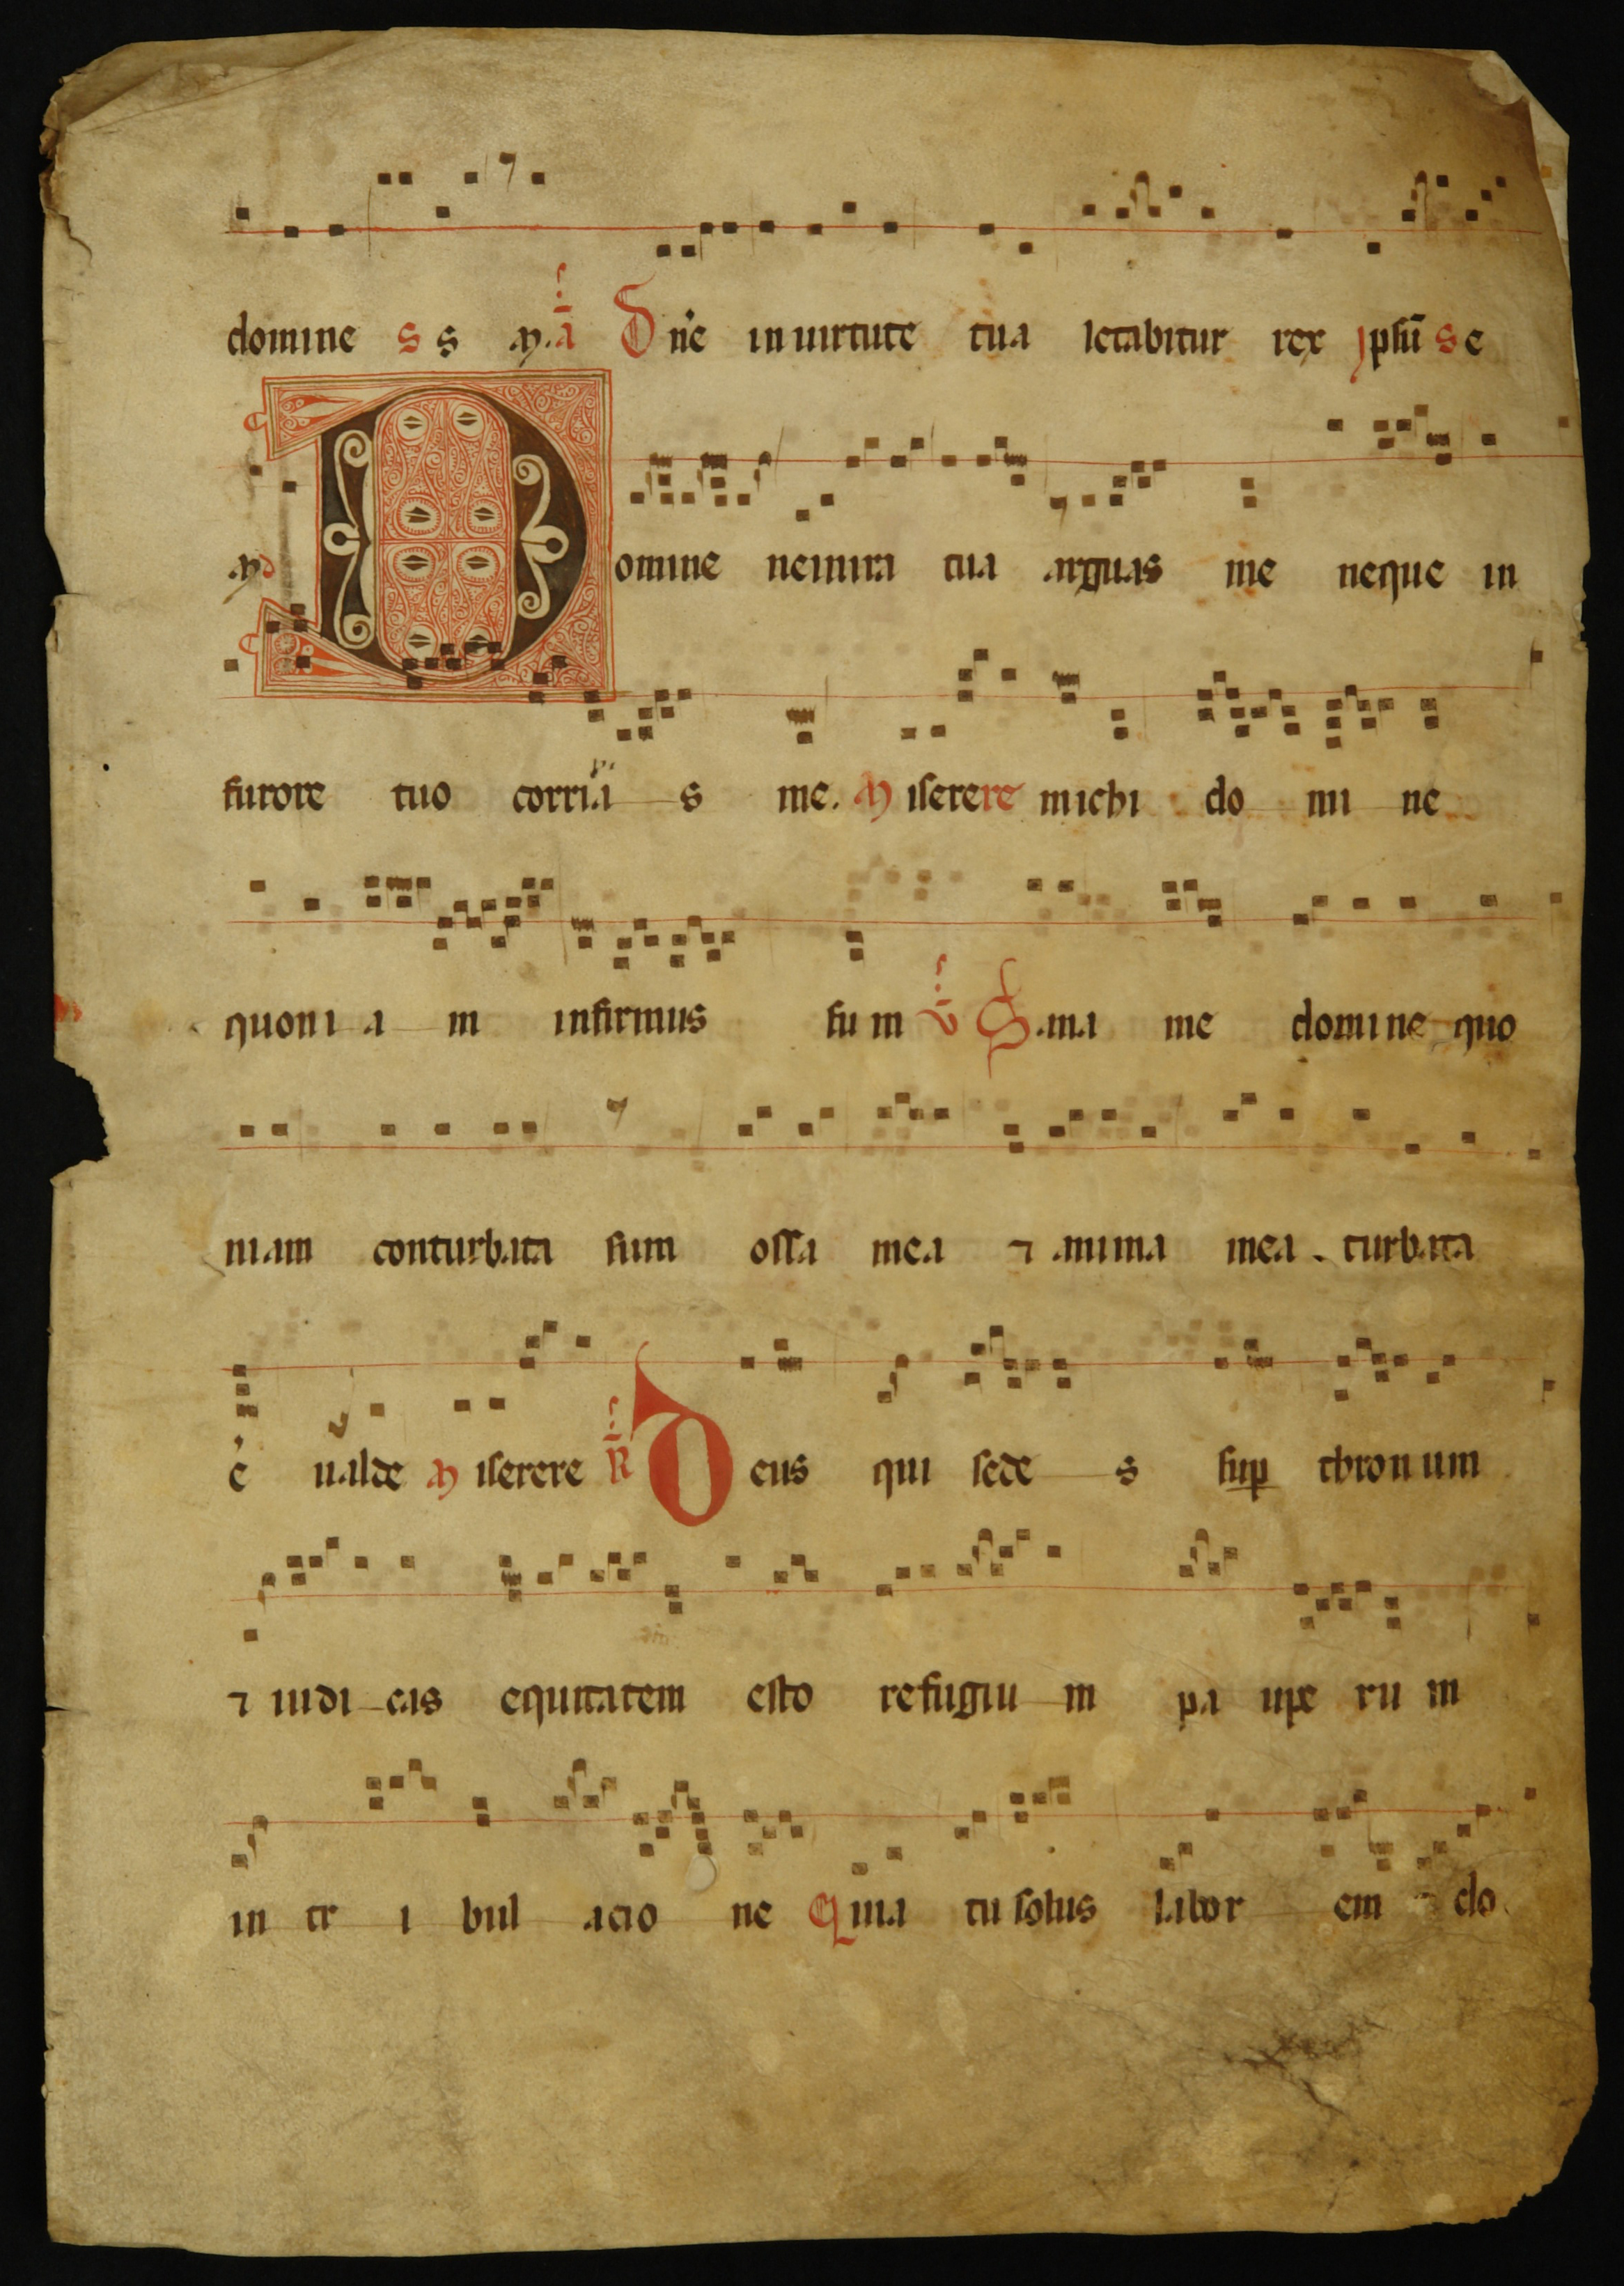 domine s s .a. ā Dn̄e in uirtute tua letabitur rex ipsū se
Domine ne in ira tua arguas me neque in
furore tuo corripias me. Miserere michi do mi ne
quoni a m infirmus sum v̄ Sana me domine quo
niam conturbata sunt ossa mea ⁊ anima mea . turbata
é ualde Miserere R̄ Deus qui sede s sup̱ thronum
⁊ iudi cas equitatem esto refugiu m pa upe ru m
in tr i bul acio ne Quia tu solus labor em do